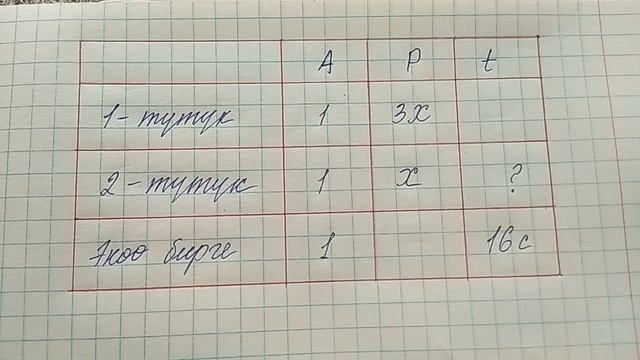 A P t
1-тутук 1 3x
2-тутук 1 x ?
Экөө бирге 1 16с